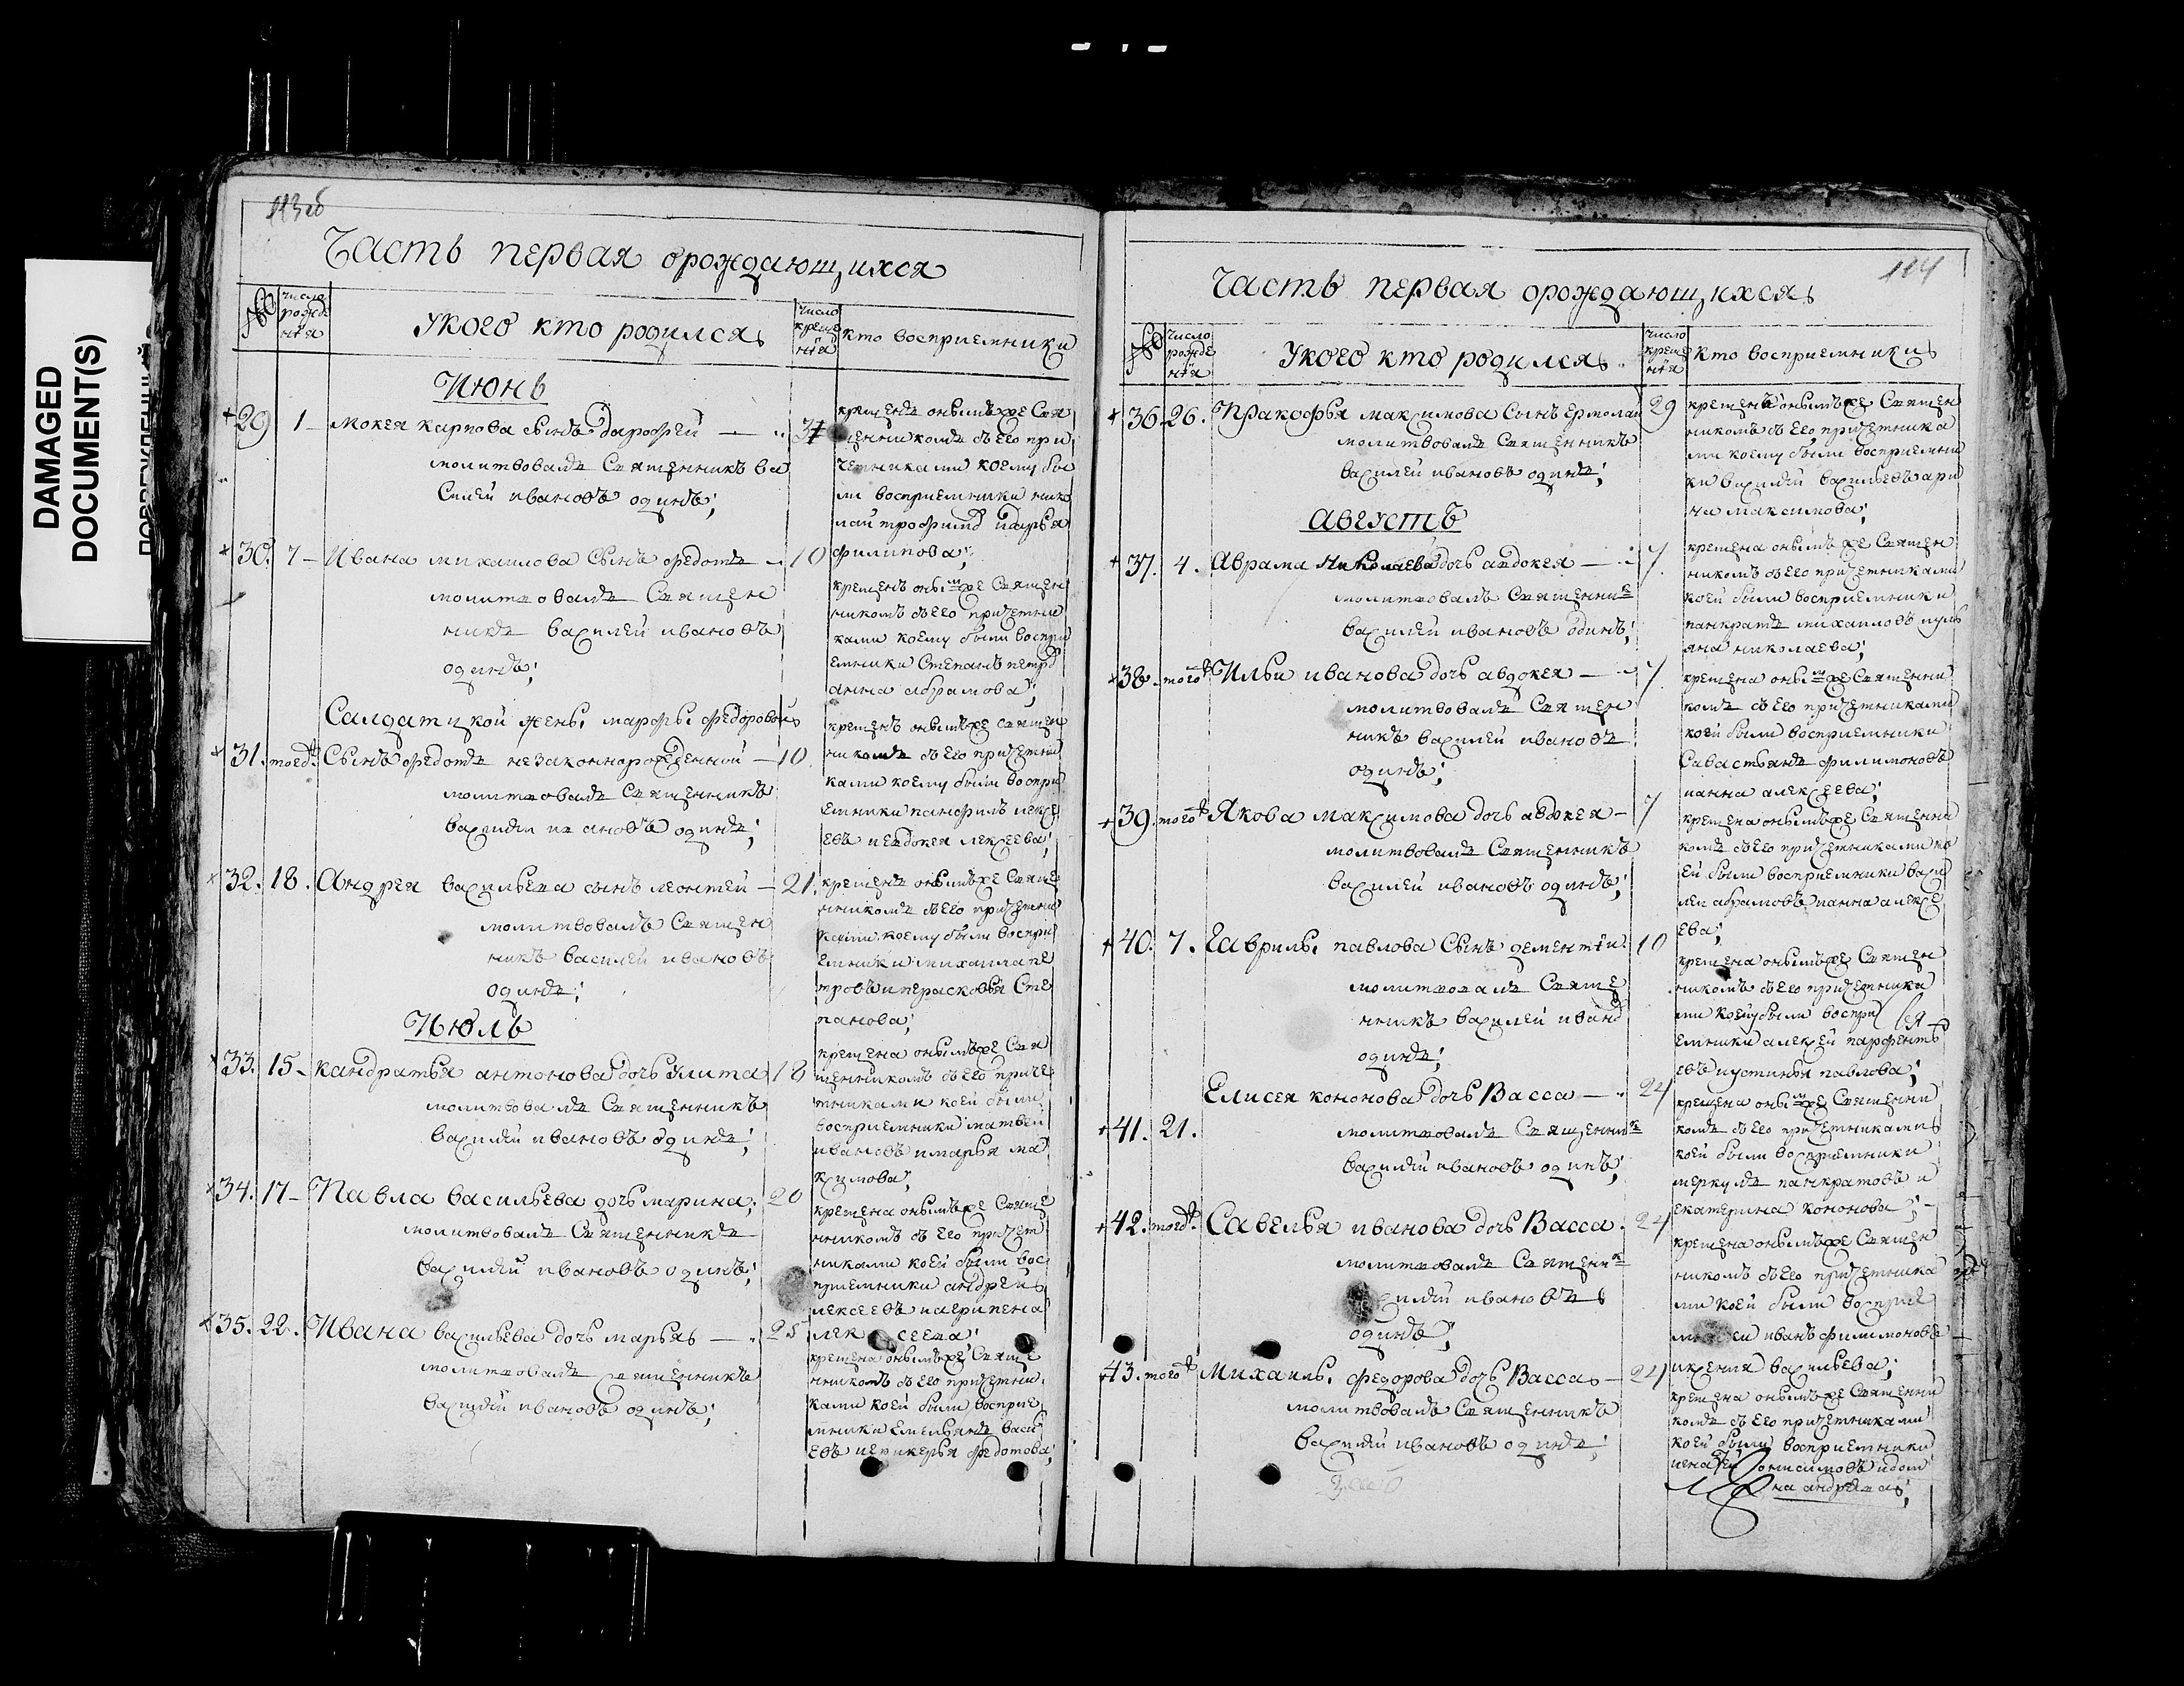 DAMAGED
DOCUMENT(S)
113 об
Часть первая орождающихся
№
число рожде нїя
Укого кто родился
число креще нїя
кто восприемники
Июнь
29 1 Мокея карпова сынъ дарофей
молитвовалъ Священникъ ва
силей ивановъ одинъ;
крещенъ онымъже Свя
щенникомъ съ его при
четниками коему бы
ли восприемники нико
лай трофимо идарья
филипова;
30. 7 Ивана михаилова Сынъ федотъ 10
молитвовалъ Священ
никъ василей ивановъ
одинъ;
крещенъ онымже Священ
никомъ съ его причетни
ками коему были воспри
емники Степанъ петро
анна абрамова;
Салдатцкой жены марфы федоровой
31. тогод Сынъ федотъ незаконнорожденной 10
молитвовалъ Священникъ
василей ивановъ одинъ;
крещенъ онымъже священ
никомъ съ его причетни
ками коему были воспри
емники панфилъ алексе
евъ иевдокея алексеева;
32. 18. Андрея васильева сынъ леонтей 21.
молитвовалъ Священ
никъ василей ивановъ
одинъ;
крещенъ онымъже Свяще
нникомъ съ его причетни
ками коему были воспри
емники михаила пе
тровъ ипрасковья Сте
панова;
Июль
33. 15 кандратья антонова дочь Улита 18
молитвовалъ Священникъ
василей ивановъ одинъ;
крещена онымъже Свя
щенникомъ съ его приче
тниками коей были
восприемники матвей
ивановъ имарья ма
ксимова;
34. 17 Павла васильева дочь марина; 20
молитвовалъ Священникъ
василей ивановъ одинъ;
крещена онымъже Свяще
нникомъ съ его причет
никами коей были вос
приемники андрей
алексеевъ иагрипена
алексеева;
35. 22. Ивана васильева дочь марья 25
молитвовалъ священникъ
василей ивановъ одинъ;
крещена онымъже Свяще
нникомъ съ его причетни
ками коей были восприе
мники Емельянъ васи
евъ игликерья федотова;
114
Часть первая орождающихся
№
число рожде нїя
Укого кто родился
число креще нїя
кто восприемники
36. 26. Пракофья максимова Сынъ Ермолаи 29
молитвовалъ Священникъ
василей ивановъ одинъ;
крещенъ онымъже Священ
никомъ съ его причетника
ми коему были восприемни
ки василей васильевъ ари
на максимова;
Августъ
37. 4. Аврама Николаева дочь авдокея 7
молитвовалъ Священник
василей ивановъ одинъ;
крещена онымъже Священ
никомъ съ его причетниками
коей были восприемники
панкратъ михаиловъ иуль
яна николаева;
38. тогод Ильи иванова дочь авдокея 7
молитвовалъ Священ
никъ василей ивановъ
одинъ;
крещена онымже Священни
комъ съ его причетниками
коей были восприемники
Савастьянъ филимоновъ
ианна алексеева;
39. тогод Якова максимова дочь авдокея 7
молитвовалъ Священникъ
василей ивановъ одинъ;
крещена онымъже Священни
комъ съ его причетниками ко
ей были восприемники васи
лей абрамовъ ианна алексе
ева;
40. 7. Гаврилы павлова Сынъ дементїи 10
молитвовалъ Свяще
нникъ василей ивано
одинъ;
крещена онымъже Священ
никомъ съ его причетника
ми коему были воспри
емники алексей парфентъ
евъ иустинья павлова;
41. 21. Елисея кононова дочь Васса 24
молитвовалъ Священник
василей ивановъ одинъ;
крещена онымже Священни
комъ съ его причетниками
коей были восприемники
меркулъ панкратовъ и
екатерина кононова;
42. тогод Савелья иванова дочь Васса 24
молитвовалъ Священик
василей ивановъ
одинъ;
крещена онымъже Священ
никомъ съ его причетника
ми коей были восприе
мники иванъ филимоновъ
иксения васильева;
43. тогод Михаилы федорова дочь Васса 24
молитвовалъ Священникъ
василей ивановъ одинъ;
крещена онымъже Священни
комъ съ его причетниками
коей были восприемники
онисимовъ идом
на андреева;